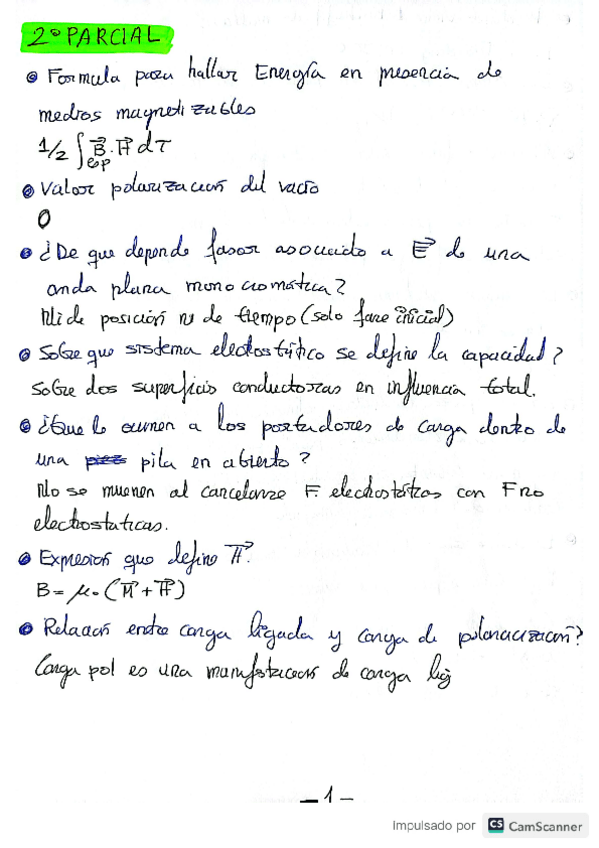 2º PARCIAL
Formula para hallar Energía en presencia de
medios magnetizables
1/2 ∫esp B⃗·H⃗ dτ
Valor polarización del vacío
0
¿De que depende fasor asociado a E⃗ de una
onda plana monocromática?
Ni de posición ni de tiempo (solo fase inicial)
Sobre que sistema electrostático se define la capacidad?
Sobre dos superficies conductoras en influencia total.
¿Que le ocurren a los portadores de carga dentro de
una pila en abierto?
No se mueven al cancelarse F. electrostáticas con F no
electrostaticas.
Expresion que define H⃗.
B = μ₀ (M⃗ + H⃗)
Relación entre carga ligada y carga de polarización?
Carga pol es una manifestacion de carga lig
— 1 —
Impulsado por CS CamScanner